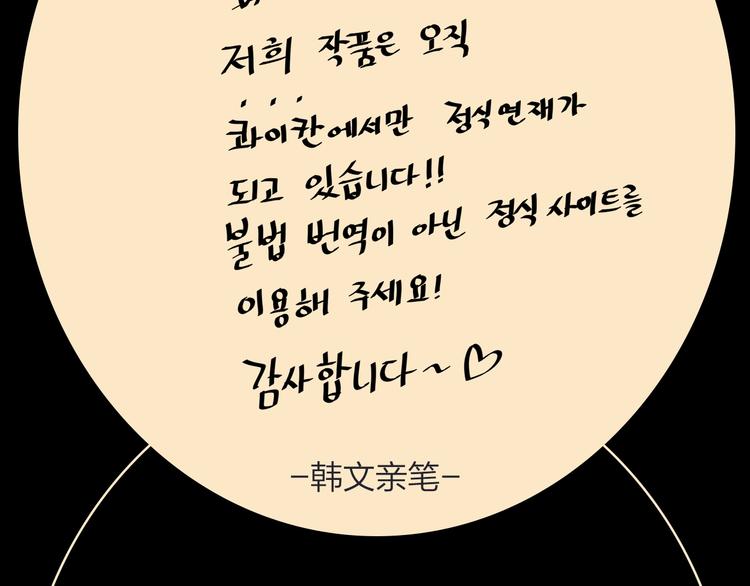 저희 작품은 오직
콰이칸에서만 정식연재가
되고 있습니다!!
불법 번역이 아닌 정식 사이트를
이용해 주세요!
감사합니다~♡
–韩文亲笔–